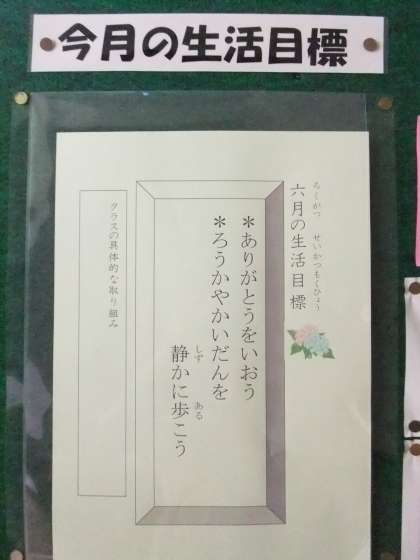 今月の生活目標
六月の生活目標
ろくがつ せいかつもくひょう
＊ありがとうをいおう
＊ろうかやかいだんを
静かに歩こう
しず ある
クラスの具体的な取り組み